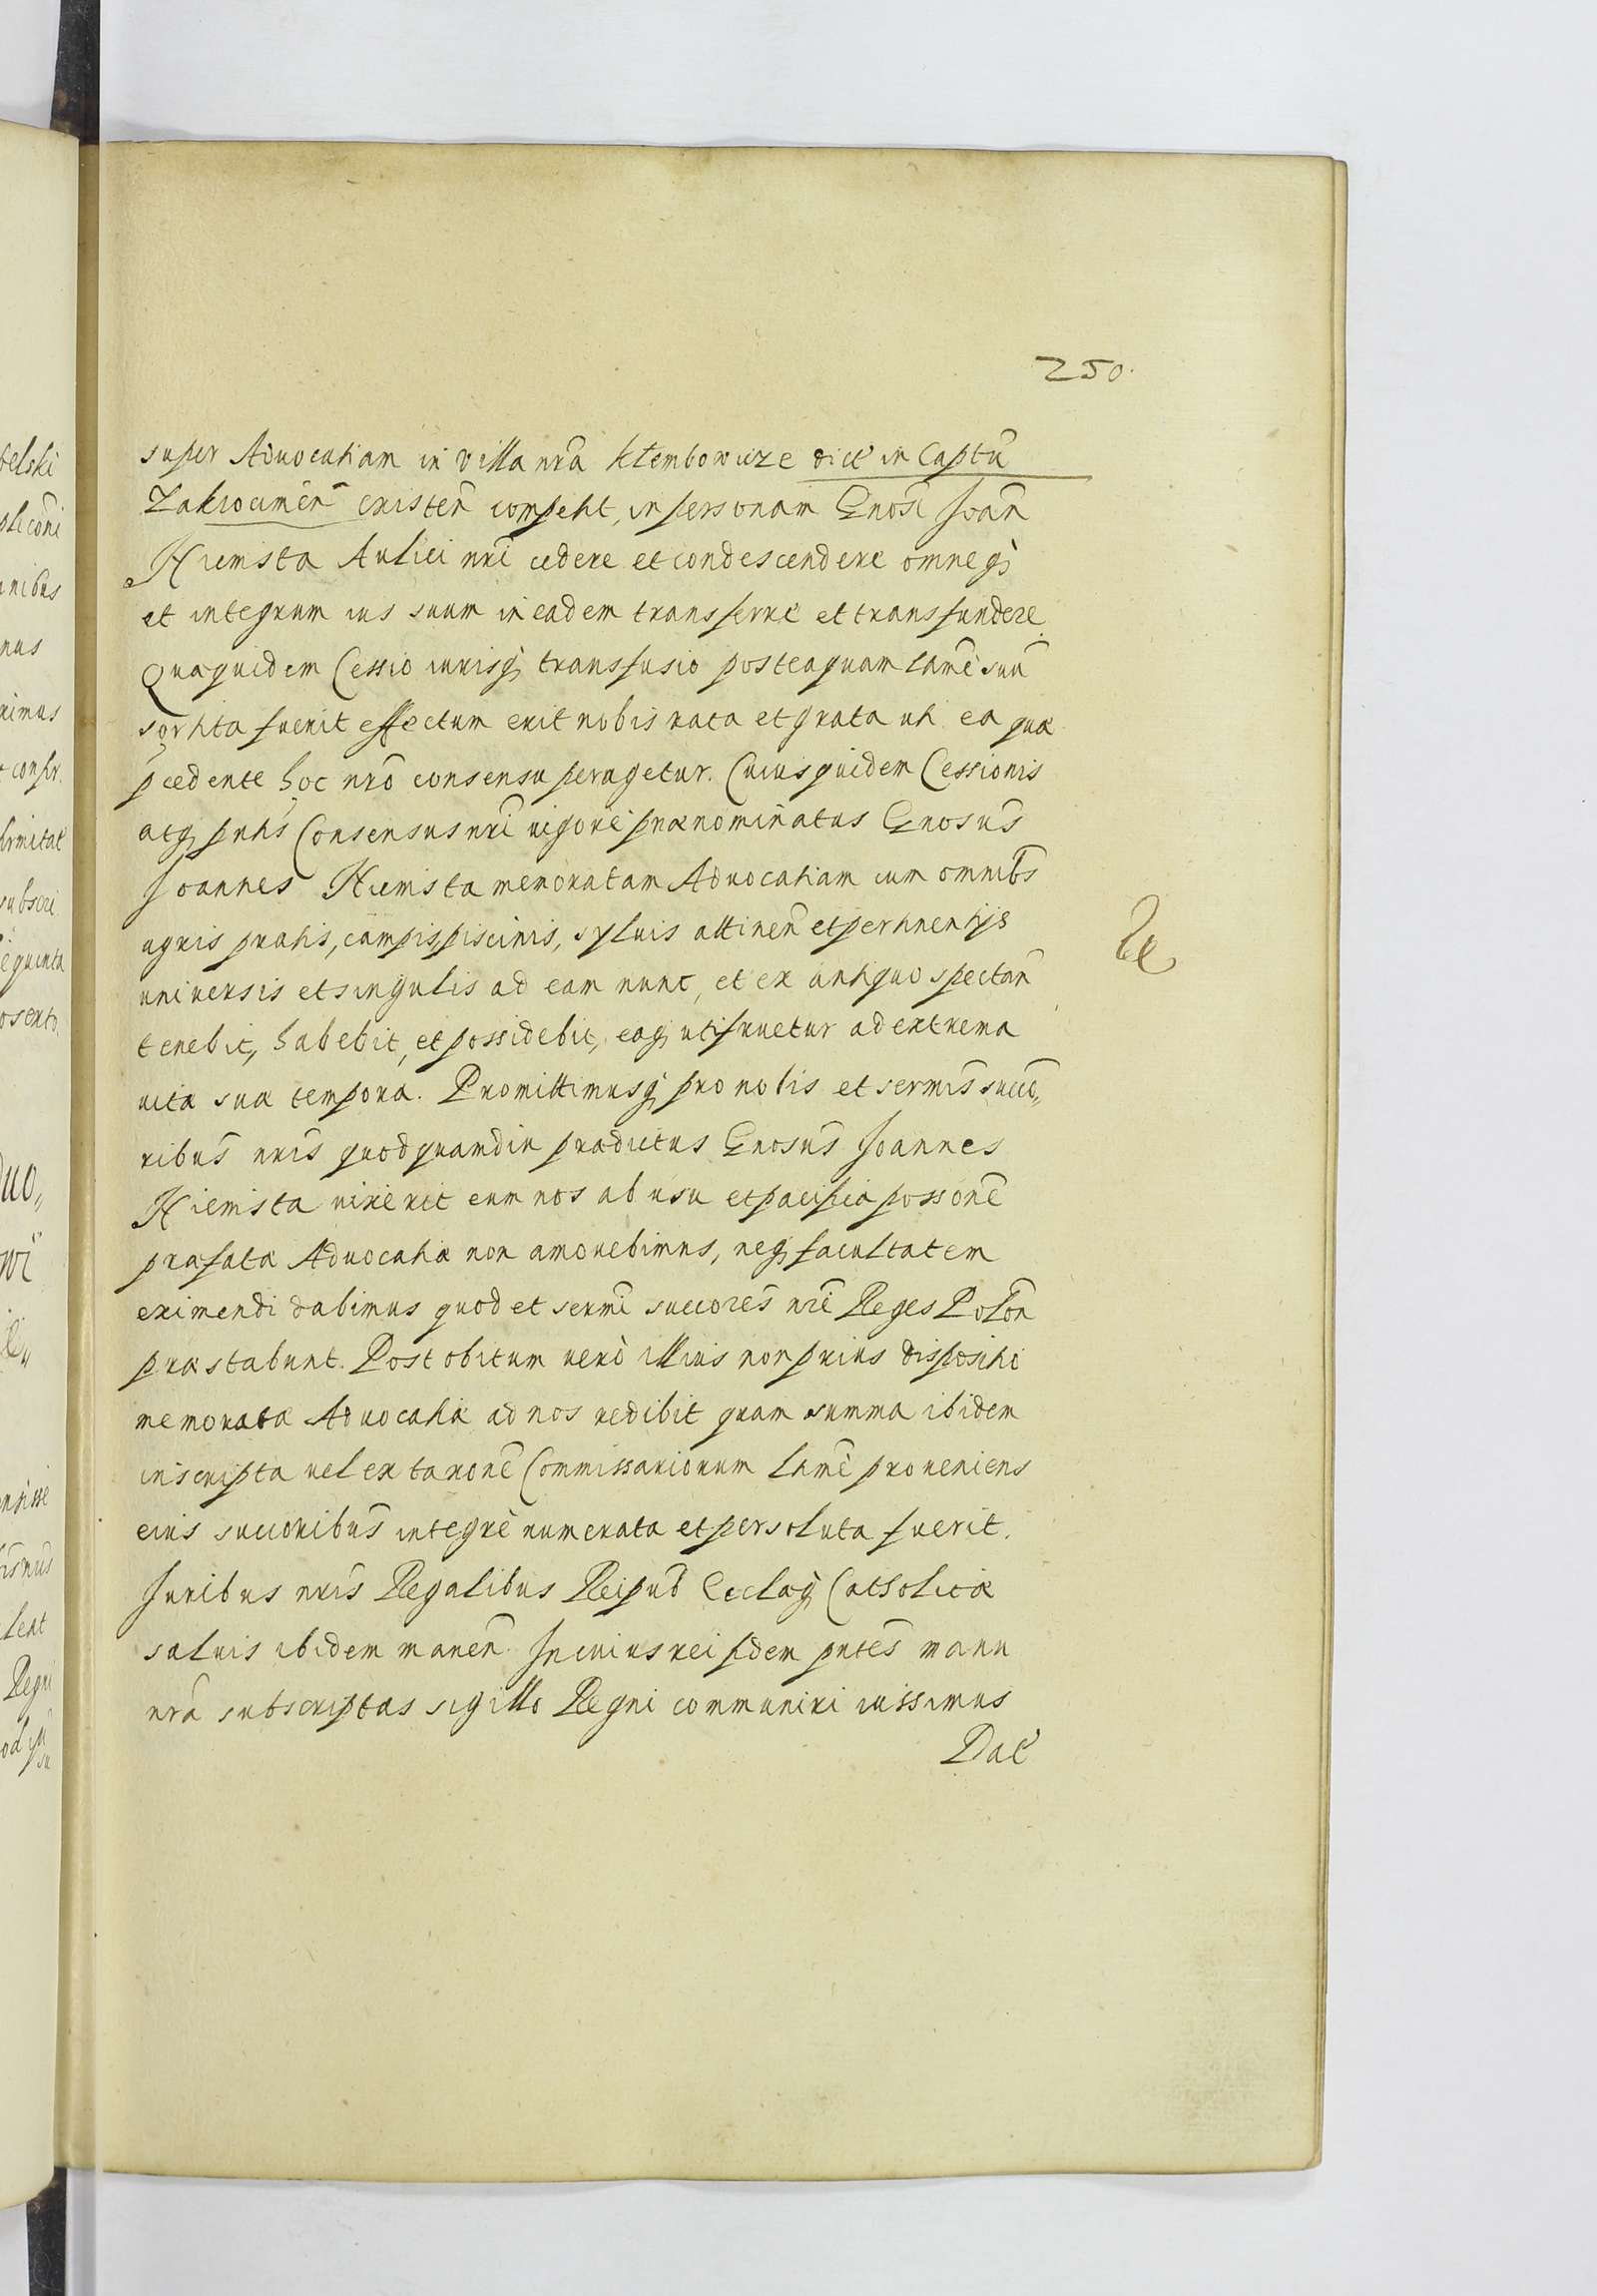 250.
super Aduocatiam in villa nrã Klembowicze dict̃ in Captũ
Zakrocimeñ existeñ competit, in personam Gnosi Joañ
Hiemsta Aulici nrĩ cedere et condescendere omneq;
et integrum ius suum in eadem transferre et transfundere.
Quæquidem Cessio iurisq; transfusio posteaquam ltmè suũ
sortita fuerit effectum erit nobis rata et grata uti ea quæ
pcedente hoc nrõ consensu peragetur. Cuius quidem Cessionis
atq; pntis Consensus nrĩ uigore prænominatus Gnosus̃
Joannes Hiemsta memoratam Aduocatiam cum omnibs̃
agris pratis, campis piscinis, syluis attineñ et pertinentijs
uniuersis et singulis ad eam nunc, et ex antiquo spectañ
tenebit, habebit, et possidebit, eaq; utifruetur ad extrema
uitæ suæ tempora. Promittimusq; pro nobis et sermis̃ succo„
ribus̃ nris̃ quod quamdiu prædictus Gnosus̃ Joannes
Hiemsta uixerit eum nos ab usu et pacifica possonẽ
præfatæ Aduocatiæ non amouebimus, neq; facultatem
eximendi dabimus quod et sermĩ succores̃ nrĩ Reges Poloñ
præstabunt. Post obitum uerò illius non prius dispositi
memorata Aduocatia ad nos redibit quam summa ibidem
inscripta uel ex taxonẽ Commissariorum ltmè proueniens
eius succoribus̃ integrè numerata et persoluta fuerit.
Juribus nris̃ Regalibus Reipub̃ Ecclæq; Catholicæ
saluis ibidem maneñ. In cuius rei fidem pntes̃ manu
nrã subscriptas sigillo Regni communiri iussimus
Dat̃